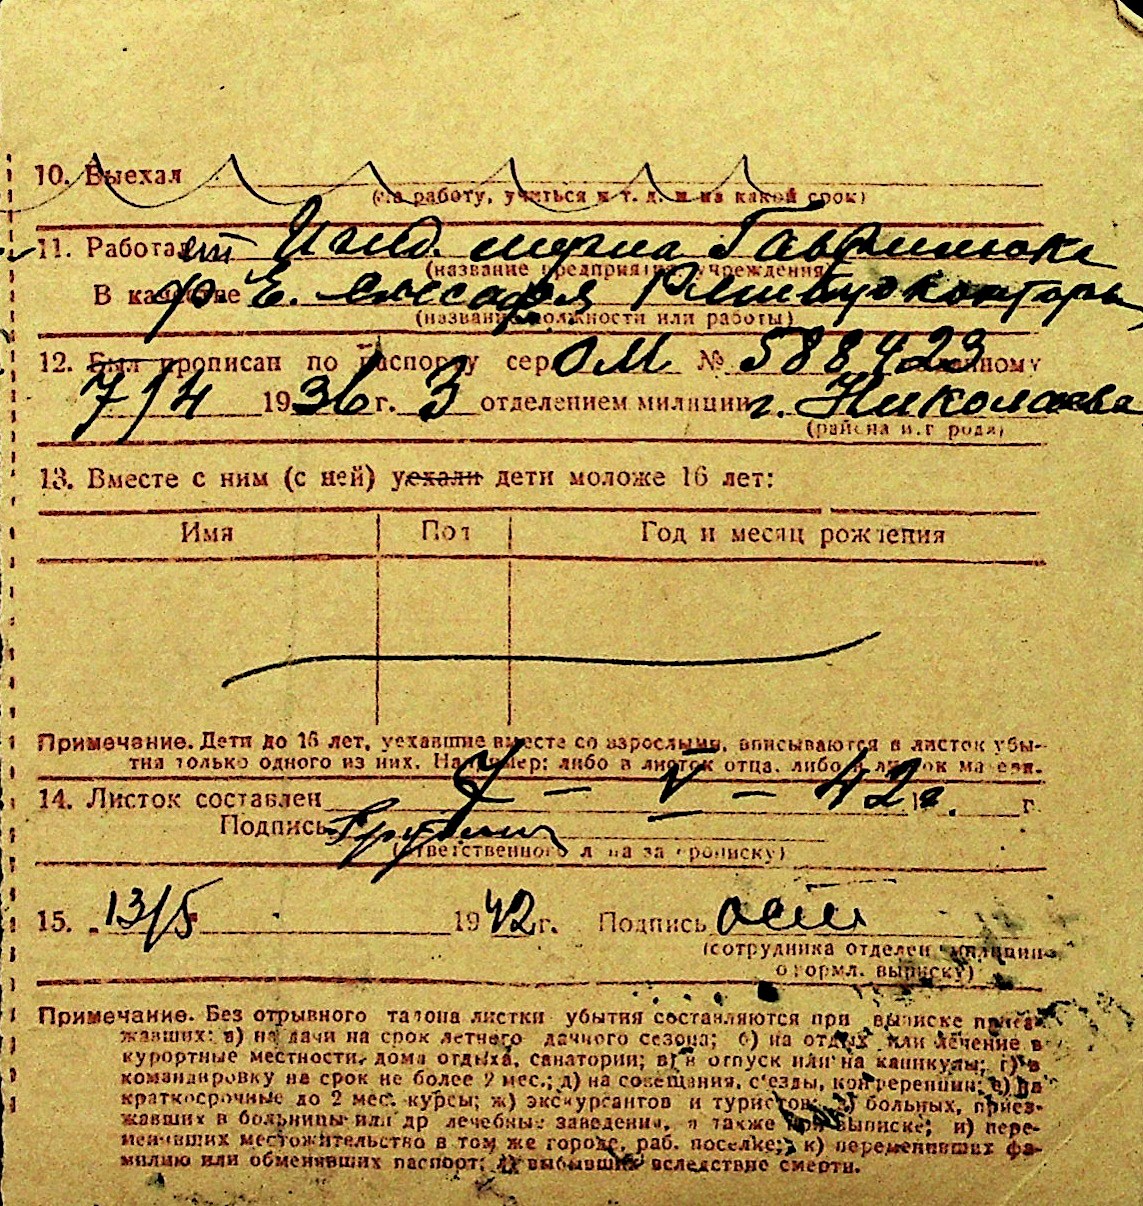 10. Выехал
(на работу, учиться и т. д. и на какой срок)
11. Работает
(название предприятия, учреждения)
В качестве
(название должности или работы)
12. Был прописан по паспорту сер. ОМ № 588423 данному
7/4 1936 г. 3 отделением милиции г. Николаева
13. Вместе с ним (с ней) уехали дети моложе 16 лет:
Имя Пол Год и месяц рождения
Примечание. Дети до 16 лет, уехавшие вместе со взрослыми, вписываются в листок убы-
тия только одного из них. Например: либо в листок отца, либо в листок матери.
14. Листок составлен – V – 42 г. г.
Подпись
(ответственного лица за прописку)
15. 13/5 1942 г. Подпись
(сотрудника отделен. милиции
оформл. выписку)
Примечание. Без отрывного талона листки убытия составляются при выписке приез-
жавших: а) на дачи на срок летнего дачного сезона; б) на отдых или лечение в
курортные местности, дома отдыха, санатории; в) в отпуск или на каникулы; г) в
командировку на срок не более 2 мес.; д) на совещания, с'езды, конференции; е) на
краткосрочные до 2 мес. курсы; ж) экскурсантов и туристов; з) больных, приез-
жавших в больницы или др лечебные заведения, а также при выписке; и) пере-
менивших местожительство в том же городе, раб. поселке; к) переменивших фа-
милию или обменявших паспорт; л) выбывших вследствие смерти.